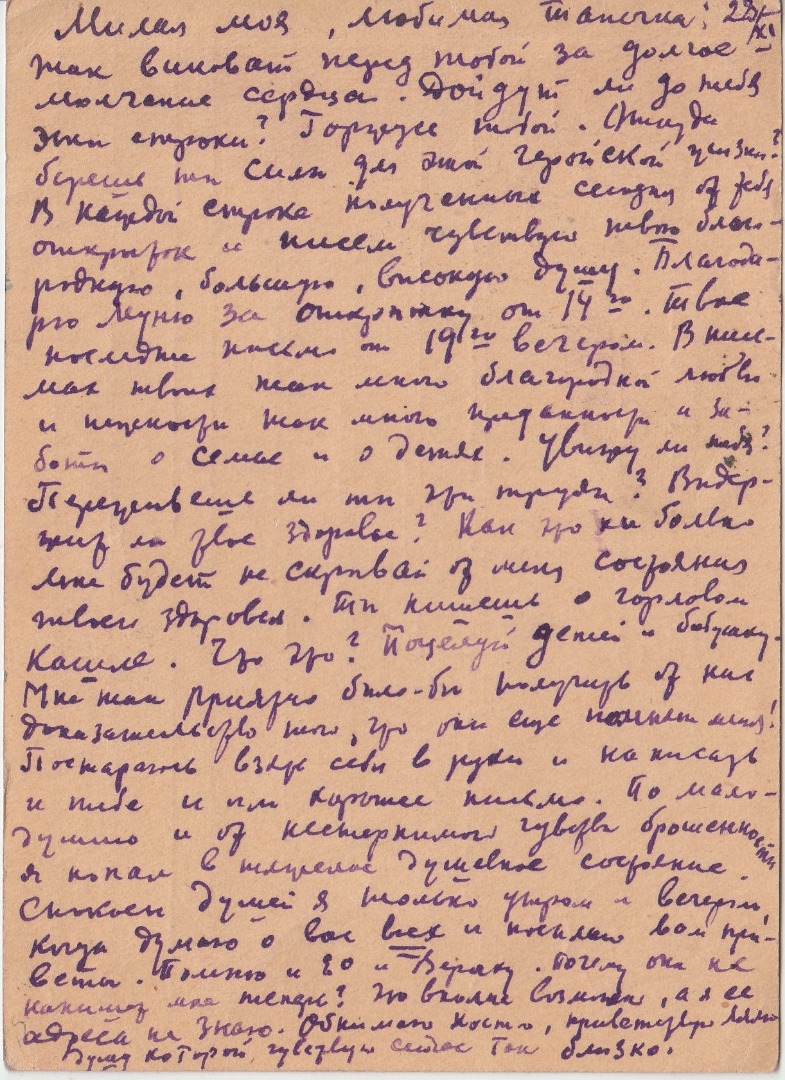 Милая моя, любимая Танечка! 22/XI
так виноват перед тобой за долгое
молчание сердца. Дойдут ли до тебя
эти строки? Горжусь тобой. Откуда
берешь ты силы для этой геройской жизни?
В каждой строке полученных сегодня от тебя
открыток и писем чувствую твою благо-
родную, большую, высокую душу. Благода-
рю за открытку от 14го. Твое
последнее письмо от 19го вечером. В пись-
мах твоих так много благородной любви
и нежности так много преданности и за-
боты о семье и о детях. Увижу ли тебя?
Переживешь ли ты эти труды? Выдер-
жит ли твое здоровье? Как это ни больно
мне будет не скрывай от меня состояния
твоего здоровья. Ты пишешь о горловом
кашле. Что это? Поцелуй детей и бабушку.
Мне так приятно было-бы получить от них
доказательство того, что они еще помнят меня!
Постараюсь взять себя в руки и написать
и тебе и им хорошее письмо. По мало-
душию и от нестерпимого чувства брошенности
я попал в тяжелое душевное состояние.
Спокоен душей я только утром и вечером,
когда думаю о вас всех и посылаю вам при-
веты. Помню и. Почему она не
напишет мне теперь? Это вполне возможно, а я ее
адреса не знаю. Обнимаю Костю, приветствую
душу которой чувствую сейчас так близко.